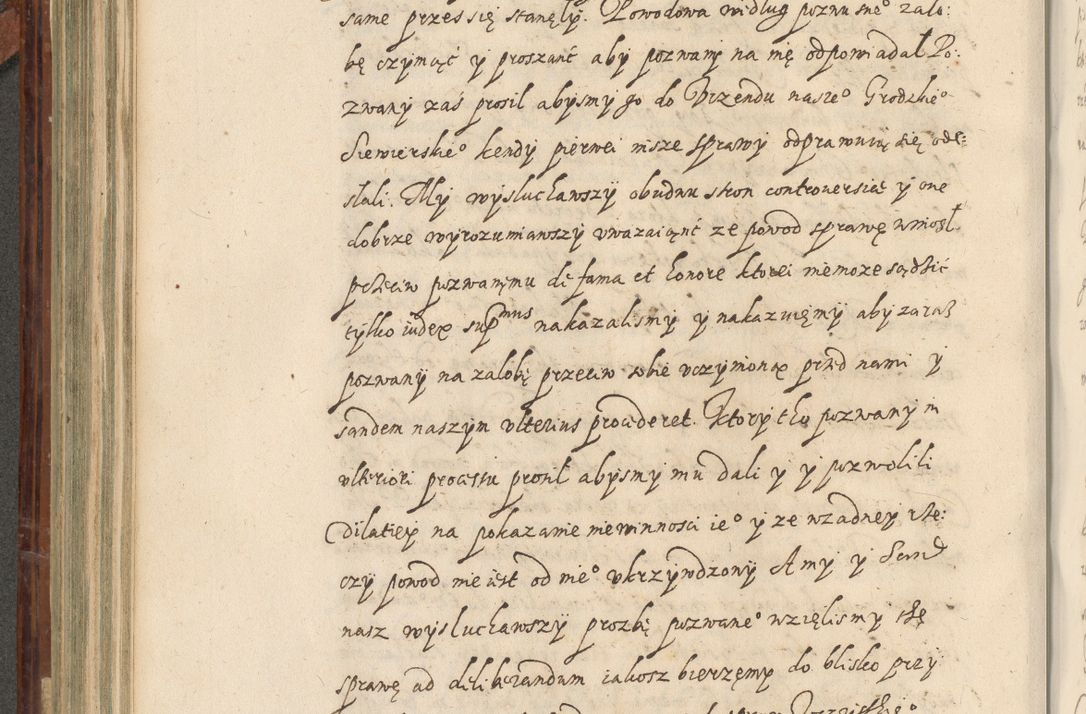 same przes się stanęły. Powodowa według poznu sne° zalo:
bę czymąć y proszanć aby pozwany na nię odpowiadał Po:
zwany zaś prosił abysmy go do Vrzendu nasze° Grodzkie°
Siewierskie° kendy pierwei nisze sprawy odprawuią się ode:
slali. My wysłuchawszy obudnu stron controuersiae y one
dobrze wyrozumiawszy vwazaiąnć ze powod sprawę wniosł
przeciw pozwanymu de fama et honore ktorei niemoze sądzić
tylko iudex supmus nakazalismy y nakazuięmy aby zaraz
pozwany na zalobę przeciw sobie vczynioną przed nami y
sandem naszym vlterius procederet. Ktory tho pozwany in
vlteriori processu prosił abysmy mu dali y y pozwolili
Dilatiey na pokazanie niewinnosci ie° y ze wzadney rze:
czy powod nie iest od nie° vkrzywdzony A my y Send
nasz wysłuchawszy prozbę pozwane° wzięlismy thę
sprawę ad deliberandum iakosz bierzęmy do blisko przy